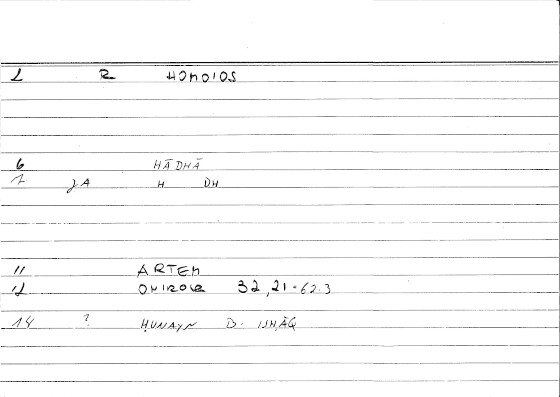 1 R HOMOIOS
6 HĀDHĀ
7 JA H DH
11 ARTEM
12 ONIROCR 32,21-62.3
14 ? ḤUNAYN B. ISḤĀQ